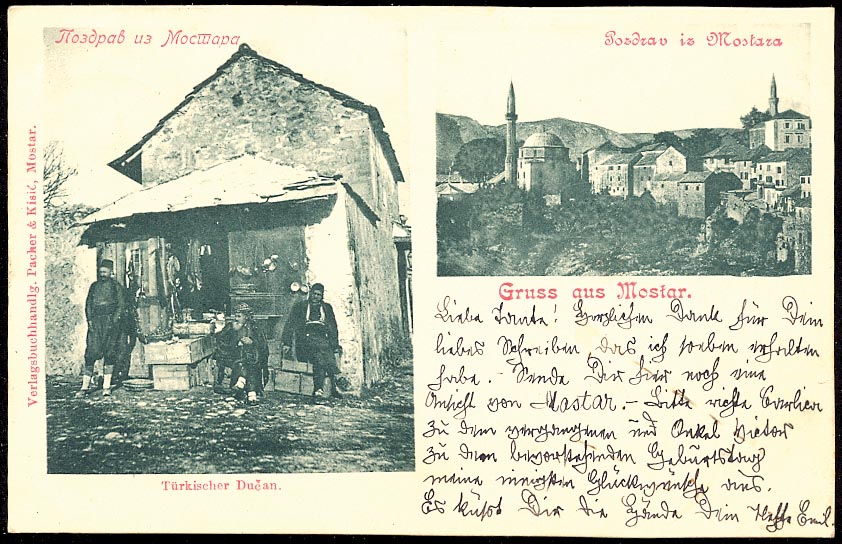 Поздрав из Мостара
Pozdrav iz Mostara
Verlagsbuchhandlg. Pacher & Kisić, Mostar.
Türkischer Dućan.
Gruss aus Mostar.
Liebe Tante! Herzlichen Dank für Dein
liebes Schreiben das ich soeben erhalten
habe. - Sende Dir hier noch eine
Ansicht von Mostar. - Bitte richte
zu dem vergangenen und Onkel Victor
zu dem bevorstehenden Geburtstag
meine innigsten Glückwünsche aus.
Es küßt Dir die Hände Dein Neffe Emil.